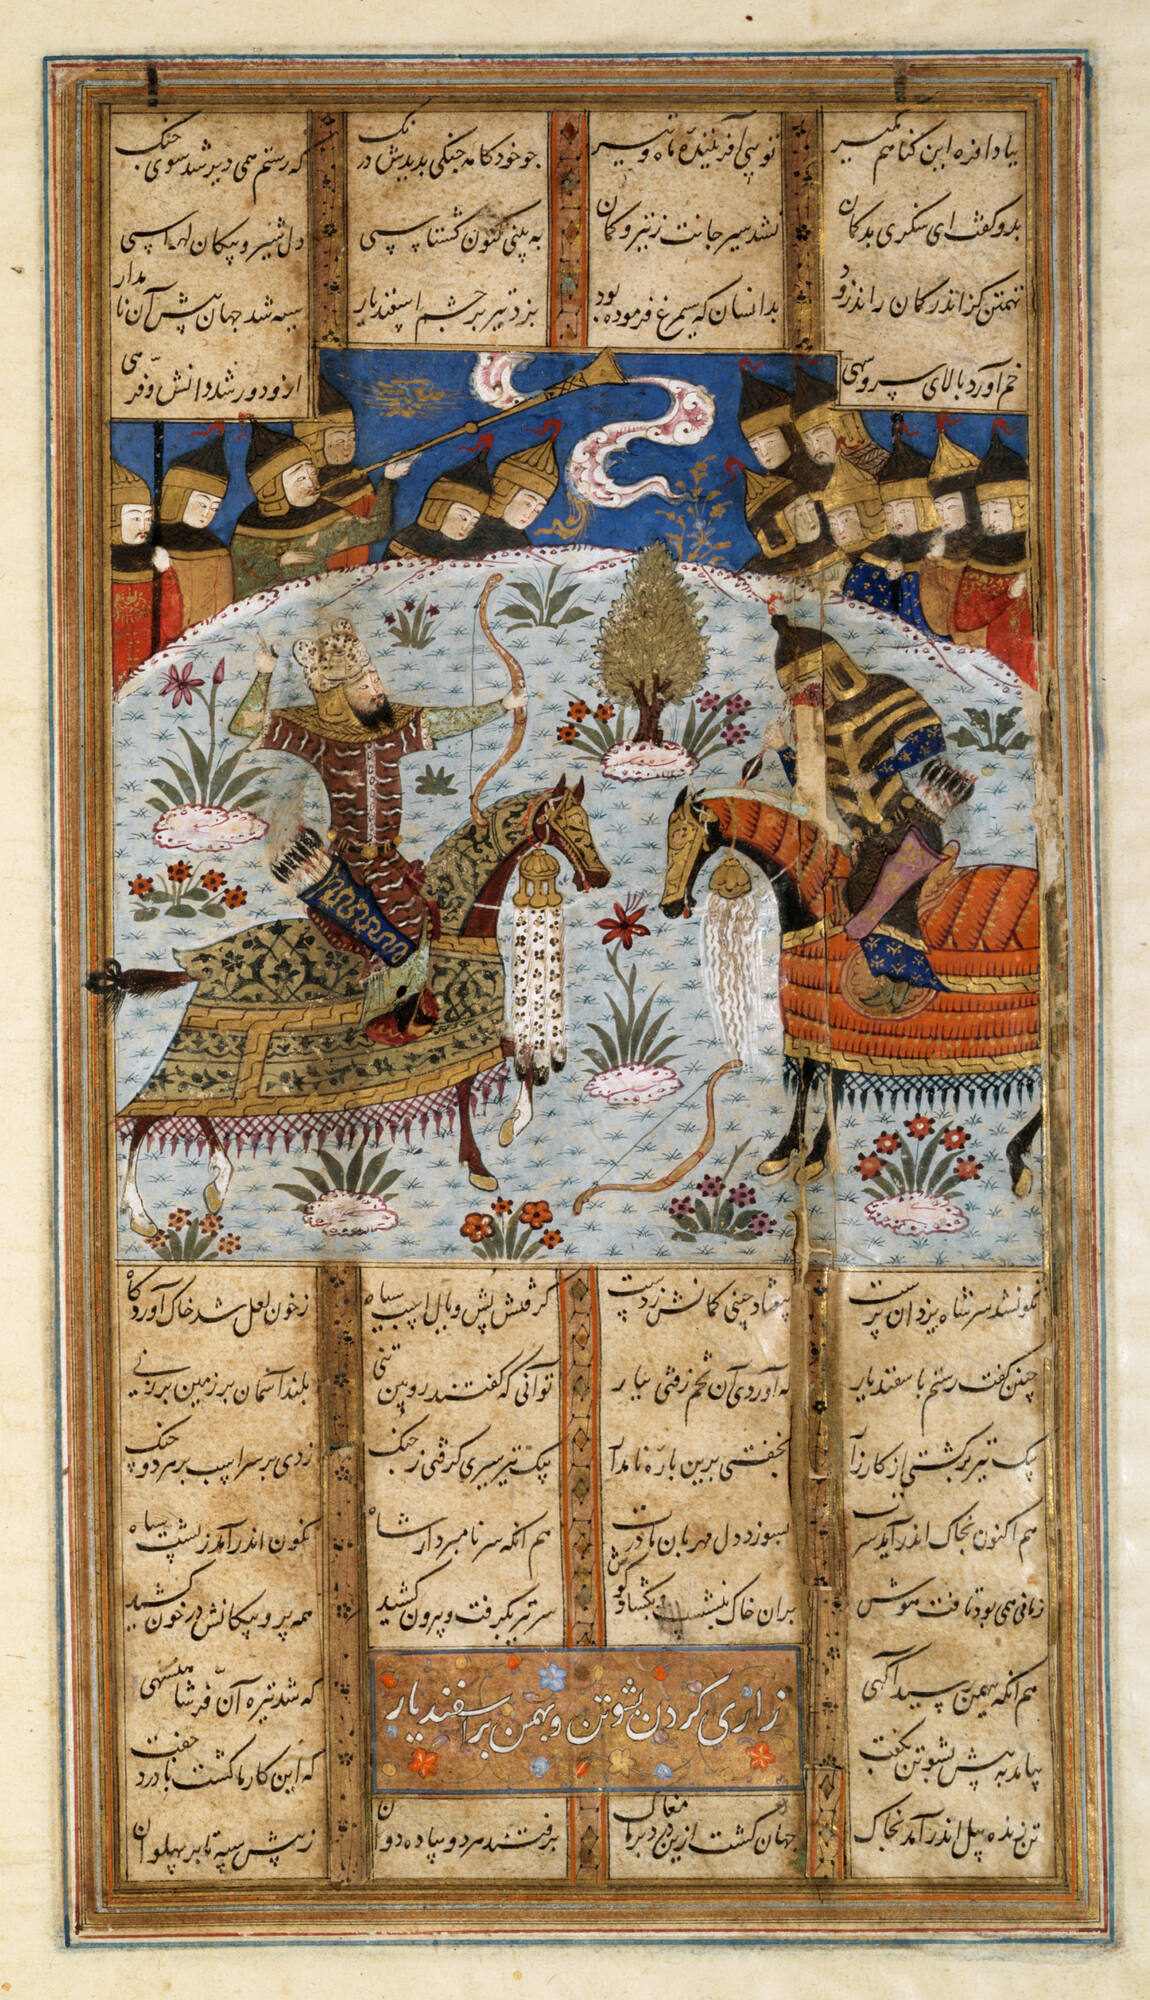 بیادافره این گناهم مگیر توی آفریننده ماه و تیر چو خود کامه جنگی بدیدش درنگ که رستم همی دیر شد سوی جنگ
بدو گفت ای سگزی بدگمان نشد سیر جانت ز تیر و کمان به بینی کنون گشتاسپی دل شیر و پیکان لهراسپی
تهمتن گز اندر کمان راند زود بدانسان که سیمرغ فرموده بود بزد تیر بر چشم اسفندیار سیه شد جهان پیش آن نامدار
خم آورد بالای سرو سهی ازو دور شد دانش و فرهی
نگونشد سر شاه یزدان پرست بیفتاد چینی کمانش ز دست گرفتش بش و یال اسپ سیاه ز خون لعل شد خاک آوردگاه
چنین گفت رستم باسفندیار که آوردی آن تخم زفتی ببار توانی که گفتند رویین تنی بلند آسمان بر زمین برزنی
بیک تیر برگشتی از کارزار بخفتی برین باره نامدار بیک تیر سیری گرفتی ز جنگ زدی بر سر اسپ بر هر دو چنگ
هم اکنون بخاک اندر آید سرت بسوزد دل مهربان مادرت هم انگه سر نامبردار شاه نگون اندر آمد ز پشت سیاه
زمانی همی بود تا یافت هوش بران خاک بنشست و بگشاد گوش سر تیر بگرفت و بیرون کشید همه پر و پیکانش در خون کشید
هم انگه بهمن رسید آگهی که شد تیره آن فر شاهنشهی
زاری کردن پشوتن و بهمن بر اسفندیار
بیامد به پیش پشوتن بگفت که این کار ما گشت با درد جفت
تن ژنده پیل اندر آمد بخاک جهان گشت ازین درد بر ما مغاک برفتند هر دو پیاده دوان ز پیش سپه تا بر پهلوان